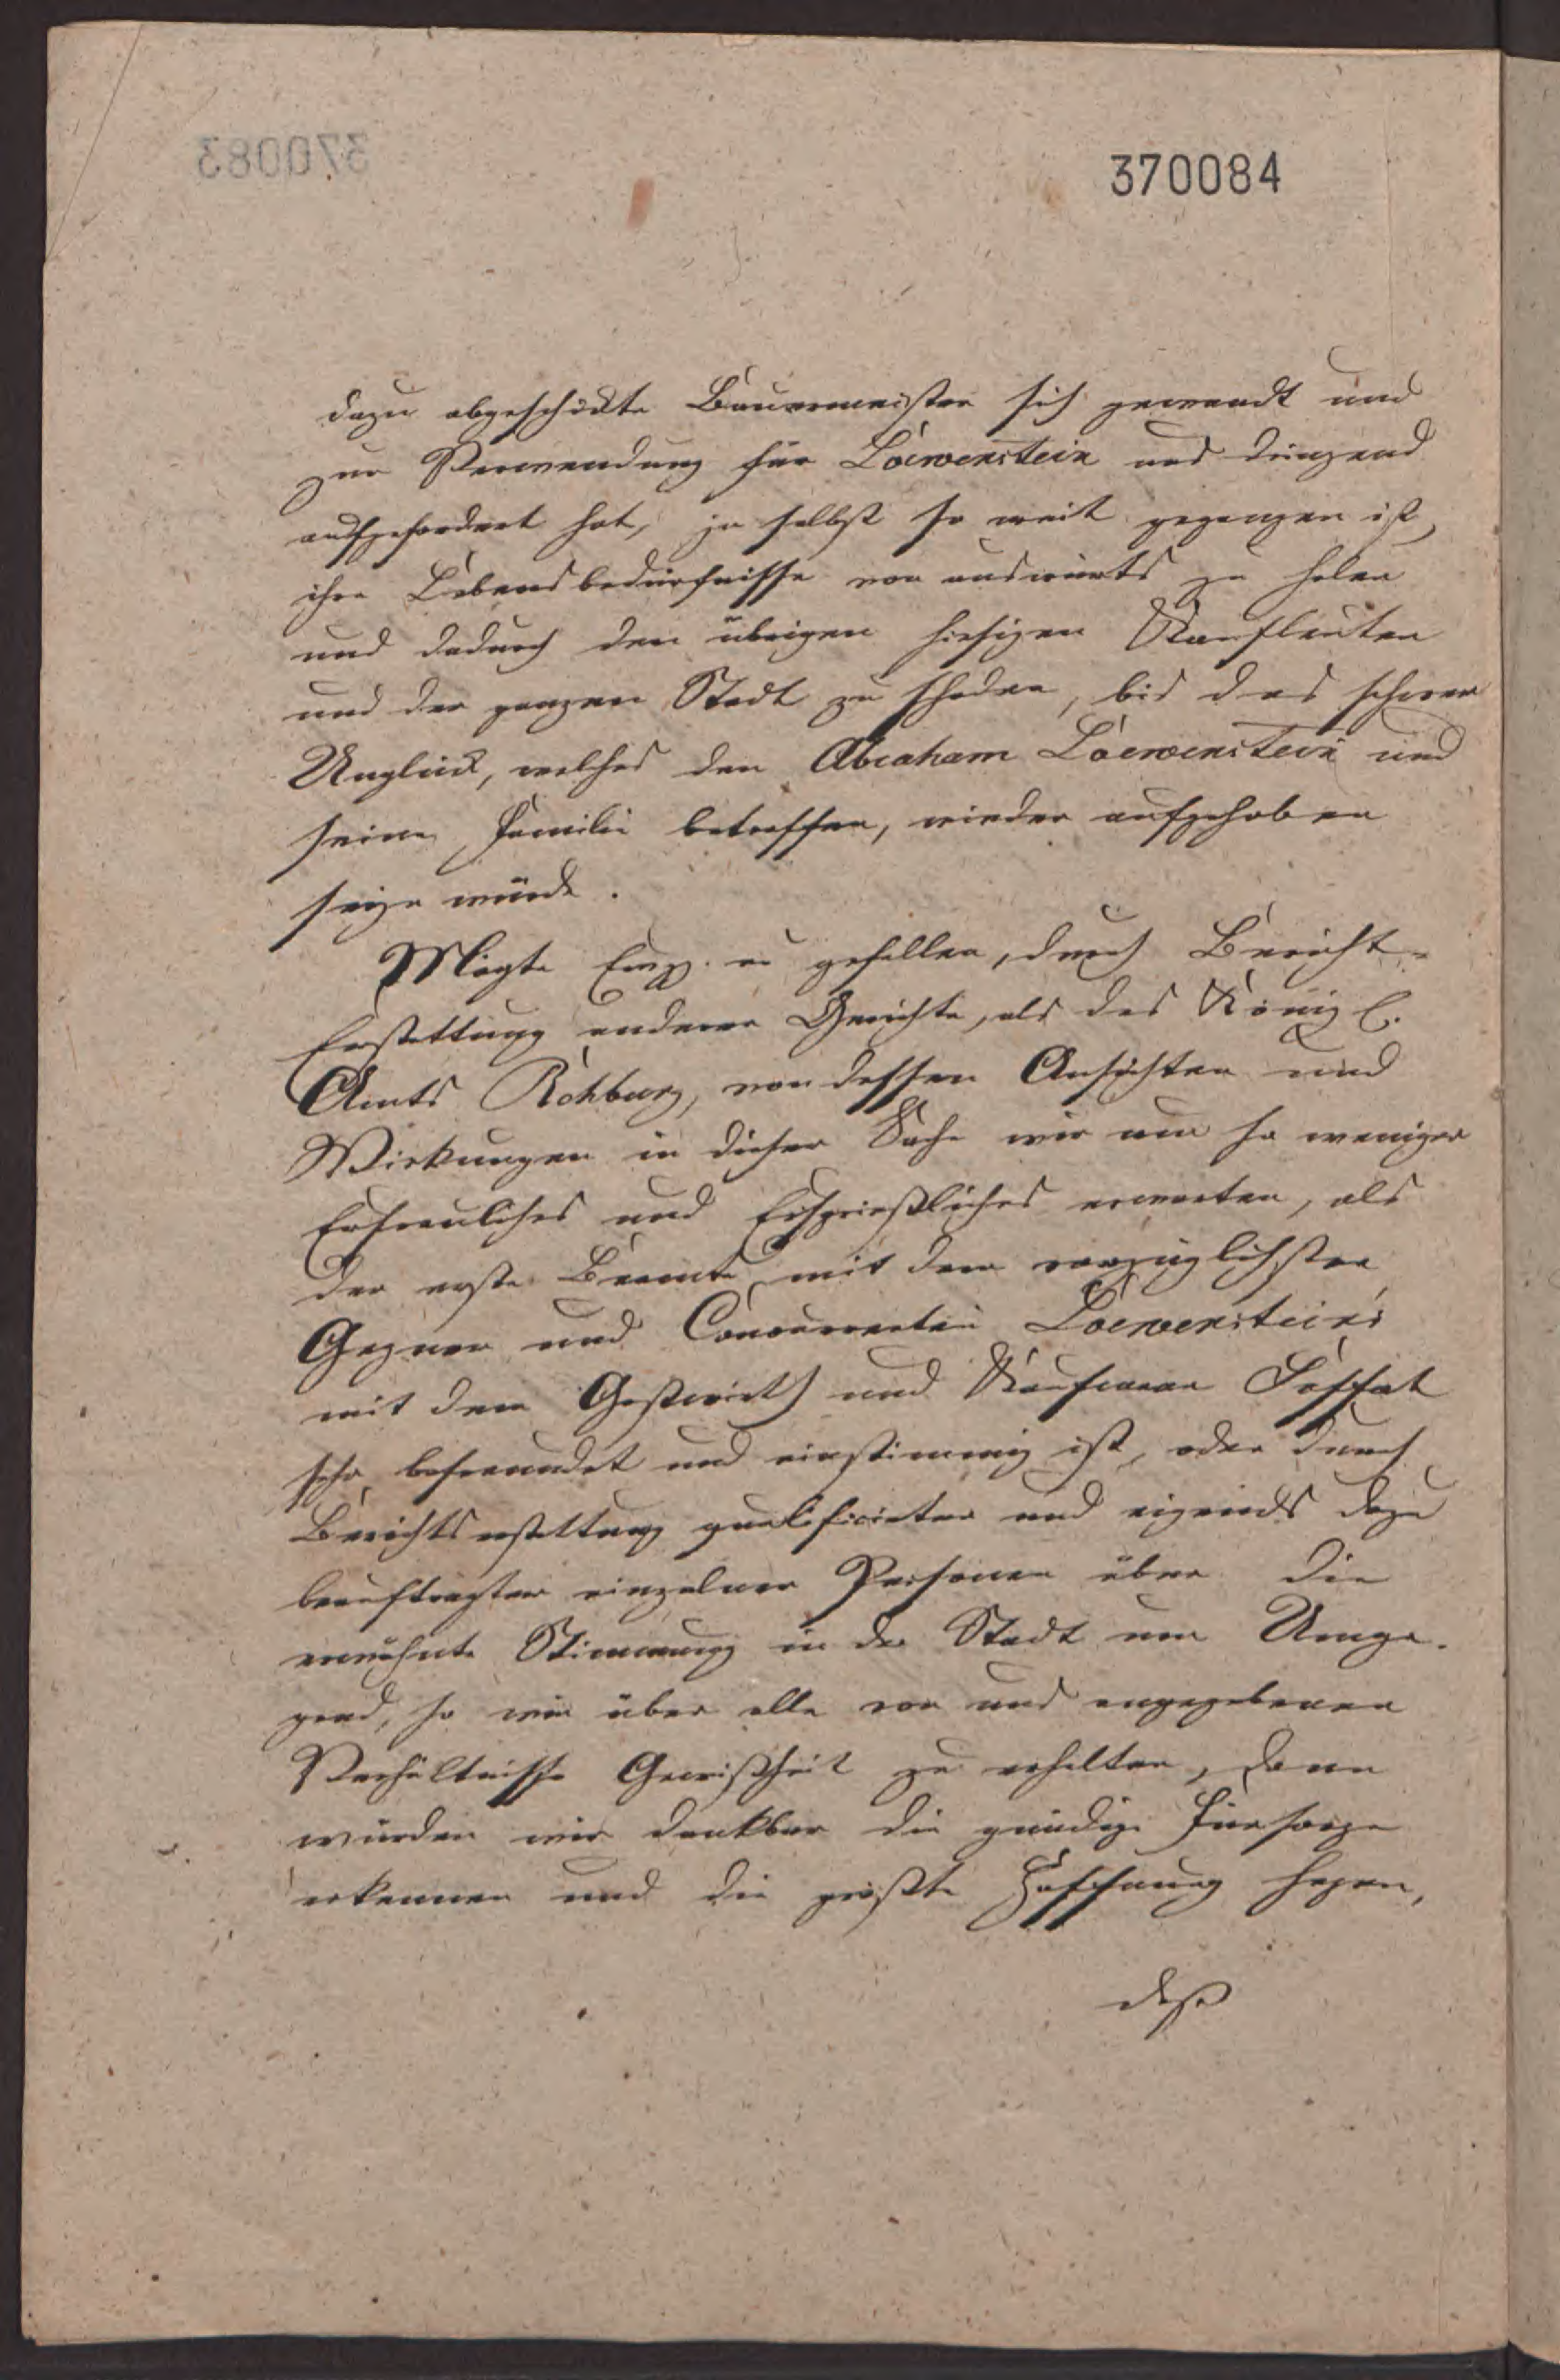 370083
370084
dazu abgeschickte Bauermeister sich gewandt und
zur Verwendung für Löewenstein uns dringend
aufgefordert hat, ja selbst so weit gegangen ist,
ihre Lebensbedürfnisse von auswärts zu holen
und dadurch den übrigen hiesigen Kaufleuten
und der ganzen Stadt zu schaden, bis das schwere
Unglück, welches den Abraham Löewenstein und
seine Familie betroffen, wieder aufgehoben
seyn würde.
Mögte es gefallen, durch Bericht-
Erstattung anderer Gerichte, als des Königl.
Amts Rehburg, von dessen Ansichten und
Wirkungen in dieser Sache wir um so weniger
Erfreuliches und Ersprießliches erwarten, als
der erste Beamte mit dem vorzüglichsten
Gegner und Concurrenten Loewenstein's
mit dem Gastwirth und Kaufmann
sehr befreundet und einstimmig ist, oder durch
Berichtserstattung qualificirter und eigends dazu
beauftragter einzelner Personen über die
erwähnte Stimmung in der Stadt und Umge-
gend, so wie über alle von uns angegebenen
Verhältnisse Gewißheit zu erhalten, dann
würden wir dankbar die gnädige Fürsorge
erkennen und die größte Hoffnung hegen,
daß